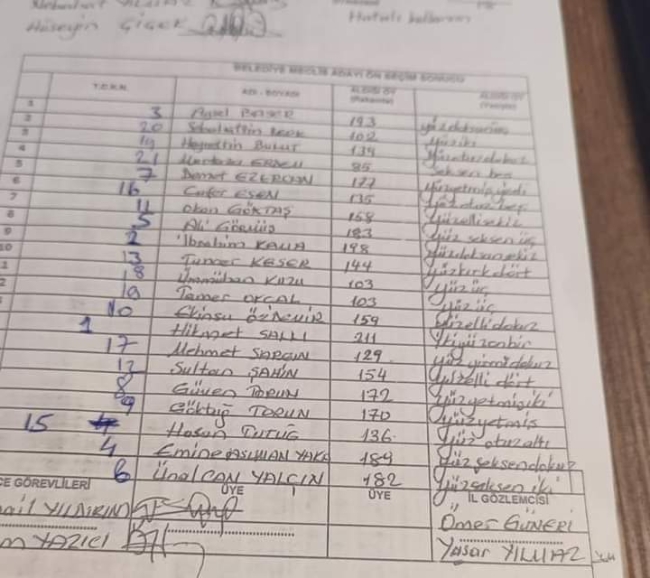 Hüseyin ÇİÇEK
BELEDİYE MECLİS ADAYI ÖN SEÇİM SONUCU
T.C.K.N. ADI - SOYADI ALDIĞI OY ALDIĞI OY
1
2 3 193 yüzdoksanüç
3 20 102 yüziki
4 19 Hayrettin Bulut 139 yüzotuzdokuz
5 21 85 seksen beş
6 7 Demet EZERCAN 177 yüzyetmişyedi
7 16 Cafer ESEN 135 yüz otuz beş
8 11 Okan GÖKTAŞ 158 yüzellisekiz
9 5 Ali 183 yüz seksen üç
10 2 İbrahim KAYA 198 yüzdoksansekiz
13 Tuncer KESER 144 yüzkırkdört
18 Ümmühan KUZU 103 yüzüç
19 Tamer 103 yüzüç
10 Ekinsu ÖZDEMİR 159 yüzellidokuz
1 Hikmet SALLI 211 ikiyüzonbir
17 Mehmet SARGIN 129 yüz yirmidokuz
12 Sultan ŞAHİN 154 yüzelli dört
8 Güven TORUN 172 yüzyetmişiki
9 Göktuğ TORUN 170 yüzyetmiş
15 Hasan TUTUĞ 136 yüz otuzaltı
4 Emine ASLIHAN YAKA 189 yüz seksendokuz
6 Ünal CAN YALÇIN 182 yüzseksen iki
GÖREVLİLERİ ÜYE ÜYE İL GÖZLEMCİSİ
YILDIRIM Ömer GÜNERİ
YAZICI Yaşar YILMAZ